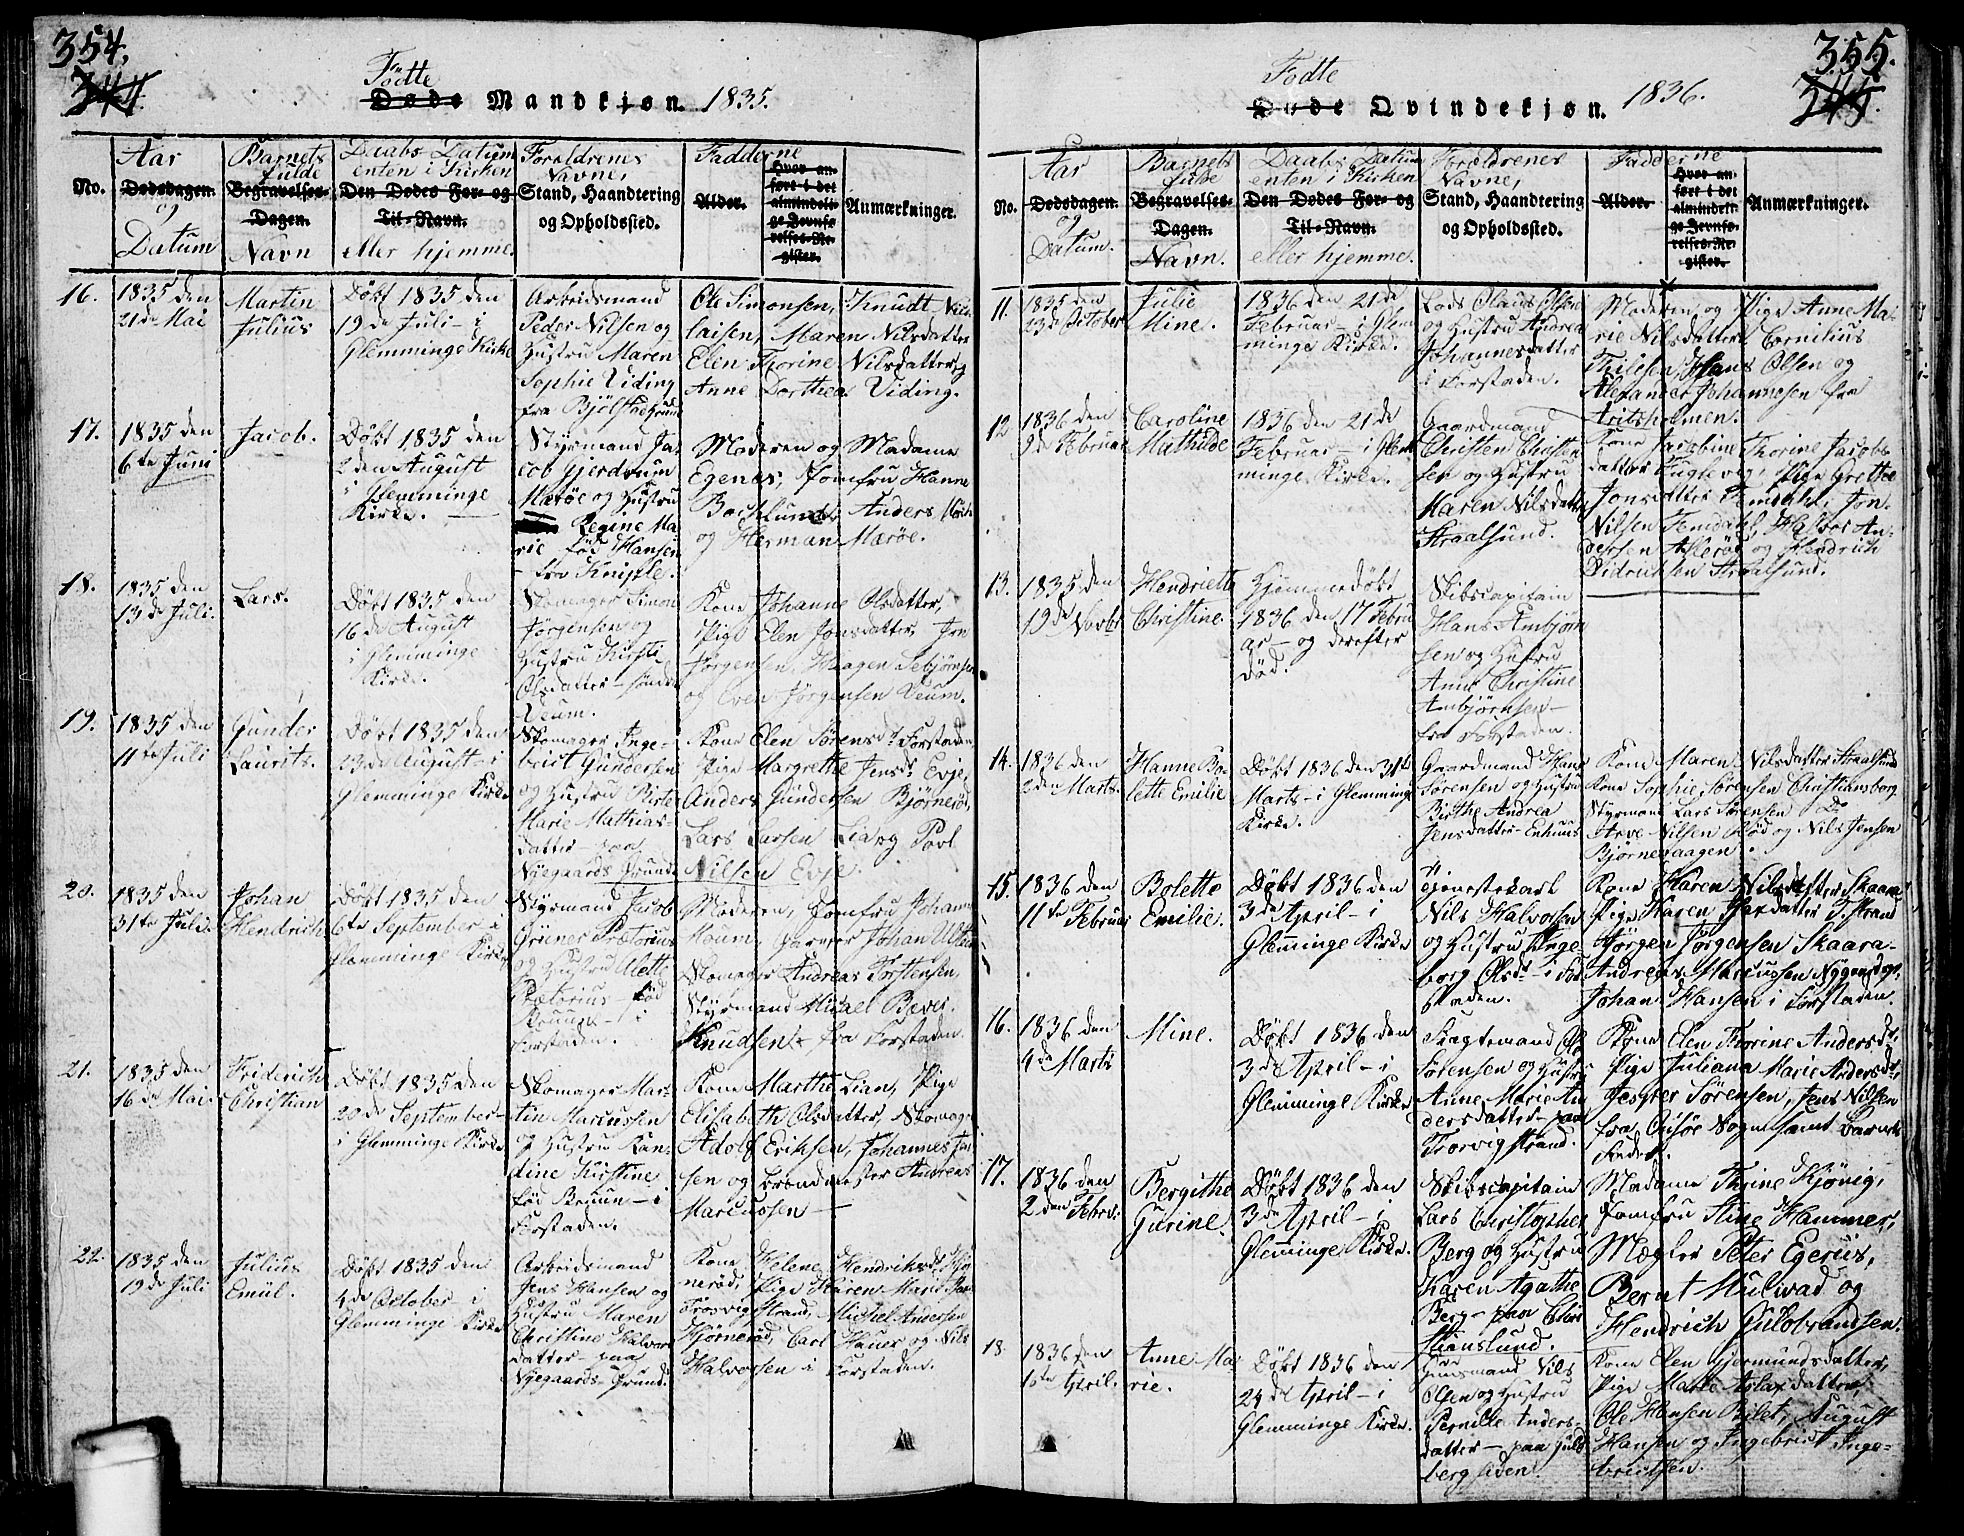 354.
344
Födte
Døde Mandkjøn. 1835.
No.
Aar
Dødsdagen.
og
Datum
Barnets
fulde
Begravelses-
Dagen.
Navn
Daabs Datum
enten i Kirken
Den Dødes For- og
Til-Navn.
eller hjemme.
Forældrenes
Navne,
Stand, Haandtering
og Opholdssted.
Fadderne
Alder.
Hvor an-
ført i det
almindeli-
ge Jevnfø-
relses-Re-
gister.
Anmærkninger.
16.
1835 den
21de Mai
Martin
Julius
Døbt 1835 den
19de Juli - i
Glemminge Kirke
Arbeidsmand
Peder Nilsen og
Hustru Maren
Sophie Viding
fra Bjölstad Grund
Ole Simonsen, Knudt Nico-
laisen, Maren Nilsdatter
Elen Thorine Nilsdatter og
Anne Dorthea Viding.
17.
1835 den
6te Juni
Jacob.
Døbt 1835 den
2den August
i Glemminge
Kirke.
Styrmand Ja-
cob Gjerdrum
Marøe og Hustru
Regine Ma-
rie fød Hansen
- fra Kniple.
Moderen og Madame
Egenes, Jomfru Hanne
Bachlund, Anders
og Herman Marøe.
18.
1835 den
13de Juli.
Lars.
Døbt 1835 den
16de August
i Glemminge
Kirke.
Skomager Simon
Jørgensen og
Hustru Kirsti
Olsdatter - søndre
Veum.
Kone Johanne Olsdatter,
Pige Elen Jonsdatter, Jens
Jørgensen, Haagen Sebjørnsen
og Even Jørgensen Veum.
19.
1835 den
11te Juli
Gunder
Laurits.
Døbt 1835 den
23de August - i
Glemminge Kirke
Skomager Inge-
brit Gundersen
og Hustru Birte
Marie Mathias-
datter - paa
Nyegaards Grund
Kone Elen Sørensd. Forstaden,
Pige Margrethe Jensd. Evje,
Anders Gundersen Bjørnerød,
Lars Larsen Lia og Povl
Nilsen Evje.
20.
1835 den
31te Juli.
Johan
Hendrich
Døbt 1835 den
6te September i
Glemminge Kirke
Styrmand Jacob
Grüner Prætorius
og Hustru Alette
Prætorius - fød
Bruun - i
Forstaden.
Moderen, Jomfru Johanne
Houm, Farver Johan
Skomager Andreas Torstensen,
Styrmand Michael Bever.
Knudsen - fra Forstaden.
21.
1835 den
16de Mai
Friderich
Christian
Døbt 1835 den
20de September -
i Glemminge Kirke
Skomager Mar-
tin Marcussen
og Hustru Kan-
dine Kirstine
fød Bruun - i
Forstaden.
Kone Marthe Lian, Pige
Elisabeth Olsdatter, Skomager
Adolf Eriksen, Johannes
sen og Brandmester Andreas
Marcussen
22.
1835 den
19de Juli
Julius
Emül.
Døbt 1835 den
4de October - i
Glemminge Kirke
Arbeidsmand
Jens Hansen og
Hustru Maren
Christine Halvors-
datter - paa
Nyegaards Grund.
Kone Helene Hendriksd. Kjør-
nerød, Pige Karen Marie
Trosvig Strand, Michel Andersen
Kjørnerød, Carl Hauer og Nils
Halvorsen i Forstaden.
355.
345.
Födte
Døde Qvindekjøn. 1836.
No.
Aar
Dødsdagen.
og
Datum.
Barnets
fulde
Begravelses-
Dagen.
Navn.
Daabs Datum
enten i Kirken
Den Dødes For- og
Til-Navn.
eller hjemme.
Forældrenes
Navne,
Stand, Haandtering
og Opholdssted.
Fadderne
Alder.
Hvor an-
ført i det
almindeli-
ge Jevnfø-
relses-Re-
gister.
Anmærkninger.
11.
1835 den
23de October
Julie
Mine.
1836 den 21de
Februar - i Glem-
minge Kirke.
Lods Olaus Olsen
og Hustru Andrea
Johannesdatter
i Forstaden.
Moderen, og Pige Anne Ma-
rie Nilsdatter, Cornilius
Thilesen, Hans Olsen og
Alexander Johannesen fra
Aritsholmen.
12
1836 den
9de Februar
Caroline
Mathilde
1836 den 21de
Februar - i Glem
minge Kirke.
Gaardmand
Christen Christen
sen og Hustru
Maren Nilsdatter
Straalsund.
Kone Jacobine Thorine Jacobs-
datter Fuglevig, Pige Grethe
Jonsdatter Femdahl, Jon
Nilsen Femdahl, An-
dersen Askerød, og Hendrich
Didrichsen Straalsund.
13.
1835 den
19de Novbr
Hendriette
Christine.
Hjemmedøbt
1836 den 17 Febru
ar - og derefter
død.
Skibscapitain
Hans Ambjørn
sen og Hustru
Anne Christine
Ambjørnsen -
fra Forstaden.
14.
1836 den
2den Marts.
Hanne Bo-
lette Emilie
Døbt 1836 den 31te
Marts - i Glemminge
Kirke.
Gaardmand Hans
Sørensen og Hustru
Birthe Andrea
Jensdatter - Enhuus
Kone Maren Nilsdatter Straalsund
Kone Sophie Sørensen Christiansborg
Styrmand Lars Sørensen Do
Arve Nilsen Rød og Nils Jensen
Bjørnevaagen.
15.
1836 den
11te Februar
Bolette
Emilie.
Døbt 1836 den
3de April - i
Glemminge Kirke
Tjenestekarl
Nils Halvorsen
og Hustru Inge
borg Olsd. - i For
staden.
Kone Karen Nilsdatter Skaara
Pige Karen Isaxdatter T. Strand
Jørgen Jørgensen Skaara -
Andreas Marcussen Nygaardsgr.
Johan Hansen i Forstaden.
16.
1836 den
4de Marts
Mine.
Døbt 1836 den
3de April - i
Glemminge Kirke
Fragtemand Ole
Sørensen og Hustru
Anne Marie An
dersdatter - paa
Trosvigstrand.
Kone Elen Thorine Andersdr,
Pige Juliana Marie Andersdr,
Jesper Sørensen, Jens Nilsen
fra Onsøe Sogn samt Barnets
Fader.
17.
1836 den
2den Febr.
Bergithe
Gurine.
Døbt 1836 den
3de April - i
Glemminge Kirke.
Skibscapitain
Lars Christopher
Berg og Hustru
Karen Agathe
Berg - paa Chri
stianslund.
Madame Thrine Kjønig,
Jomfru Stine Hammer,
Mægler Peter Egerius,
Bernt Mulvad og
Hendrich Gulbrandsen.
18.
1836 den
1ste April.
Anne Ma
rie.
Døbt 1836 den
24de April - i
Glemminge Kirke.
Huusmand Nils
Olsen og Hustru
Pernille Anders-
datter - paa Guld
bergsiden.
Kone Elen Gjermundsdatter,
Pige Marte Aslaxdatter,
Ole Hansen Bilet, August
Hansen og Ingebrict Inge-
brictsen.